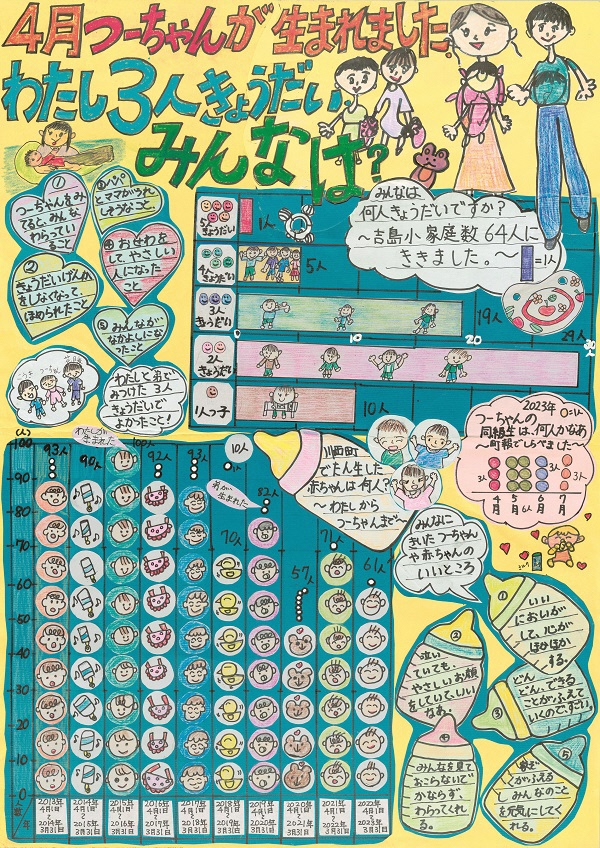 4月つーちゃんが生まれました。
わたし3人きょうだい、
みんなは?
①
つーちゃんをみ
てると、みんな
わらってい
ること
②
きょうだいげんか
をしなくなって、
ほめられたこと
③パパ
とママがうれし
そうなこと
④
お世わを
して、やさしい
人になった
こと
⑤
みんなが
なかよしになっ
たこと
わたしと弟で
みつけた3人
きょうだいで
よかったこと!
みんなは
何人きょうだいですか?
〜吉島小家庭数64人に
ききました。〜
=1人
5人
きょうだい
1人
4人
きょうだい
5人
3人
きょうだい
19人
0
10
20
30
人
2人
きょうだい
29人
1人っ子
10人
川西町
でたん生した
赤ちゃんは何人?
〜わたしから
つーちゃんまで〜
2023年
つーちゃんの
同級生は、何人かなあ
〜町報でしらべました〜
3人
6人
3人
3人
4月
5月
6月
7月
(人)
100
90
80
70
60
50
40
30
20
10
0
人数
年
93人
90人
わたしが
生まれた
100人
92人
93人
弟が
生まれた
70人
82人
57人
71人
61人
10人
2013年
4月1日
〜
2014年
3月31日
2014年
4月1日
〜
2015年
3月31日
2015年
4月1日
〜
2016年
3月31日
2016年
4月1日
〜
2017年
3月31日
2017年
4月1日
〜
2018年
3月31日
2018年
4月1日
〜
2019年
3月31日
2019年
4月1日
〜
2020年
3月31日
2020年
4月1日
〜
2021年
3月31日
2021年
4月1日
〜
2022年
3月31日
2022年
4月1日
〜
2023年
3月31日
みんなに
きいたつーちゃん
や赤ちゃんの
いいところ
①
いい
においが
して、心が
ほかほか
する。
②
泣い
ていても、
やさしいお顔
をしていていい
なあ。
③
どん
どん、できる
ことがふえて
いくのですごい。
④
みんなを見て
おこらないで
かならず、
わらってくれ
る。
⑤
家ぞ
くがふえる
し、みんなのこと
を元気にしてく
れる。